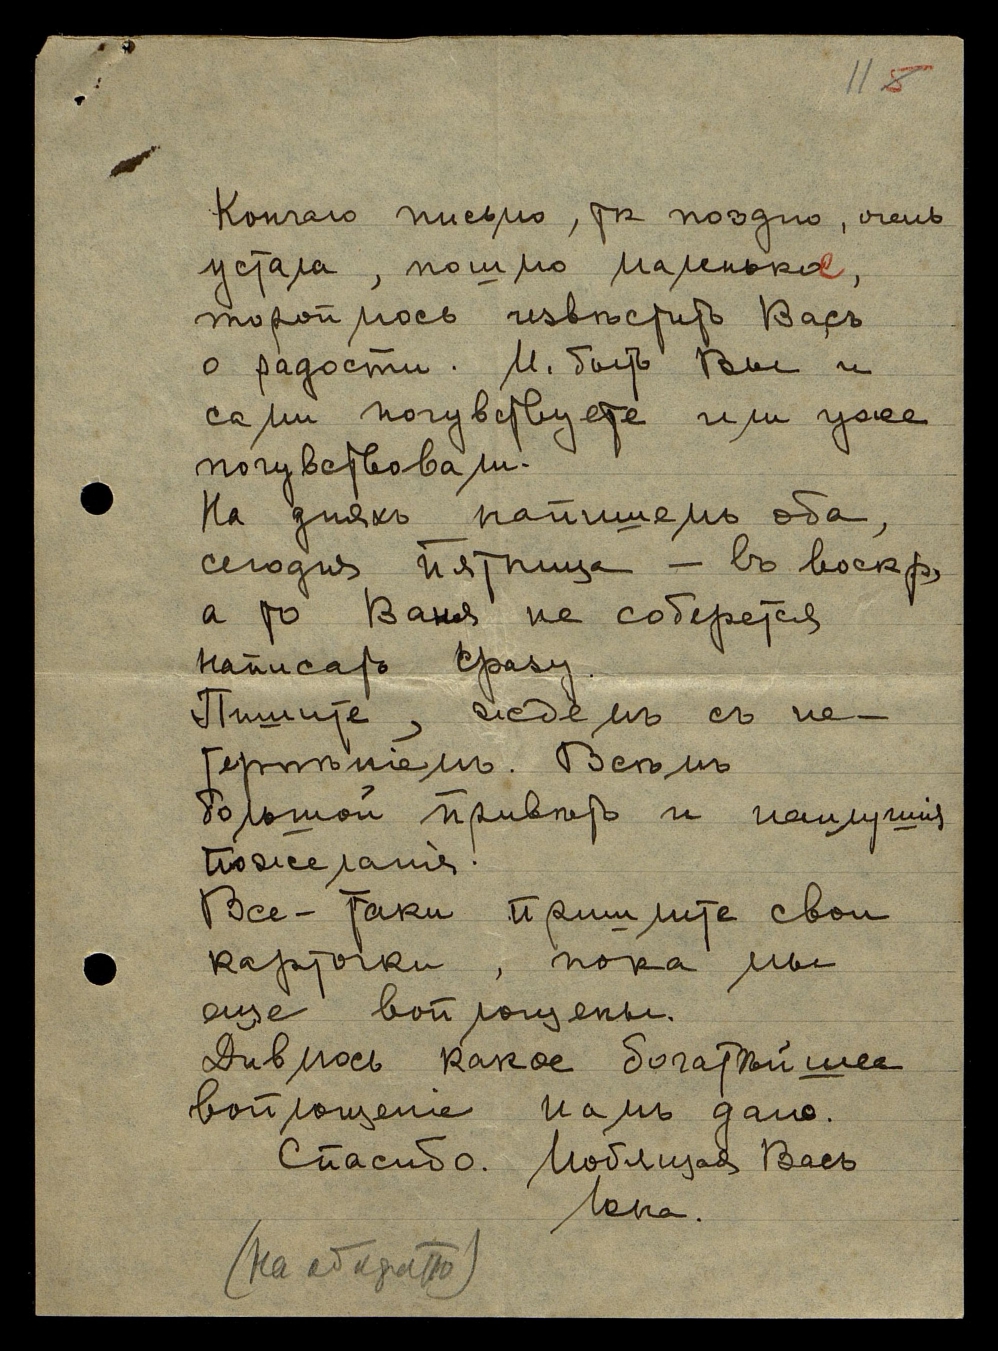 11 5
Кончаю письмо, тк поздно, очень
устала, пошлю маленькое,
тороплюсь известить Васъ
о радости. М. быть Вы и
сами почувствуете или уже
почувствовали.
На дняхъ напишемъ оба,
сегодня пятница — въ воскр,
а то Ваня не соберется
написать сразу.
Пишите, ждемъ съ не-
терпѣніемъ. Всѣмъ
большой привѣтъ и наилучшія
пожеланія.
Все-таки пришлите свои
карточки, пока мы
еще воплощены.
Дивлюсь какое богатѣйшее
воплощеніе намъ дано.
Спасибо. Любящая Васъ
Юна.
(на обѣ